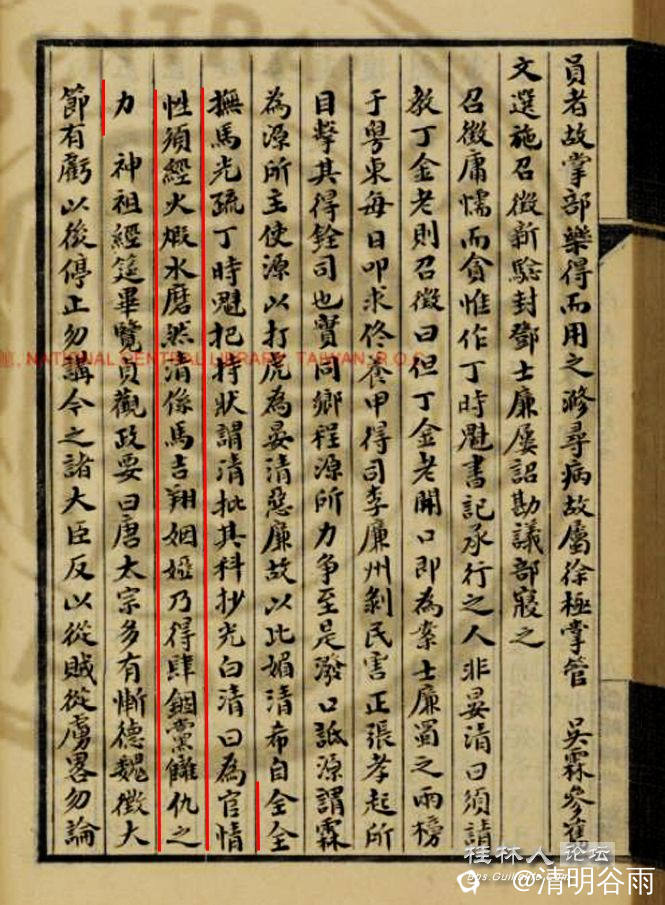 員者故掌部樂得而用之滁尋病故屬徐極掌管 吳霖參舊
文選施召徵新驗封鄧士廉屢詔勘議部寢之
召徵庸懦而貪惟作丁時魁書記承行之人非晏清曰須請
教丁金老則召徵曰但丁金老開口即為案士廉蜀之兩榜
于粵東每日叩求佟養甲得司李廉州剝民害正張孝起所
目擊其得銓司也實同鄉程源所力爭至是潑口詆源謂霖
為源所主使源以打虎為晏清惡廉故以此媚清希自全全
撫馬光疏丁時魁把持狀謂清批其科抄光白清曰為官情
性須經火煅水磨然清係馬吉翔姻婭乃得肆錮黨讎仇之
力 神祖經筵畢覽貞觀政要曰唐太宗多有慚德魏徵大
節有虧以後停止勿講今之諸大臣反以從賊從虜畧勿論
NATIONAL CENTRAL LIBRARY, TAIWAN, R.O.C.
桂林人论坛
bbs.Guilinlife.com
@清明谷雨